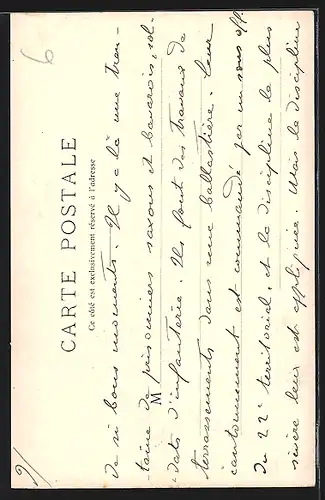 6
CARTE POSTALE
Ce côté est exclusivement réservé à l'adresse
M
de si bons moments. Il y a là une tren-
taine de prisonniers saxons et bavarois, sol-
dats d'infanterie. Ils font des travaux de
terrassements dans une ballastière. Leur
cantonnement est commandé par un sous off.
du 22e territorial, et la discipline la plus
sévère leur est appliquée. Mais la discipline
2/